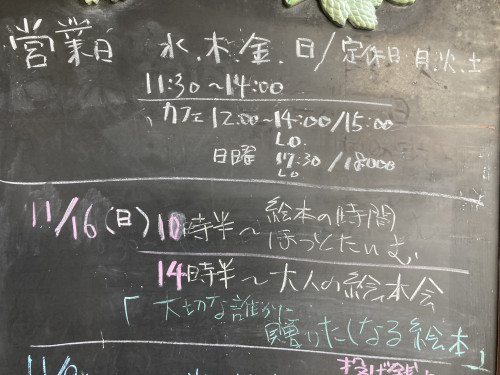 営業日 水.木.金.日/定休日 月.火.土
11:30~14:00
カフェ 12:00~14:00/15:00
L.O.
日曜 17:30/18:00
LO
11/16(日)10時半~ 絵本の時間
ほっとたいむ
14時半~大人の絵本会
「大切な誰かに
贈りたくなる絵本」